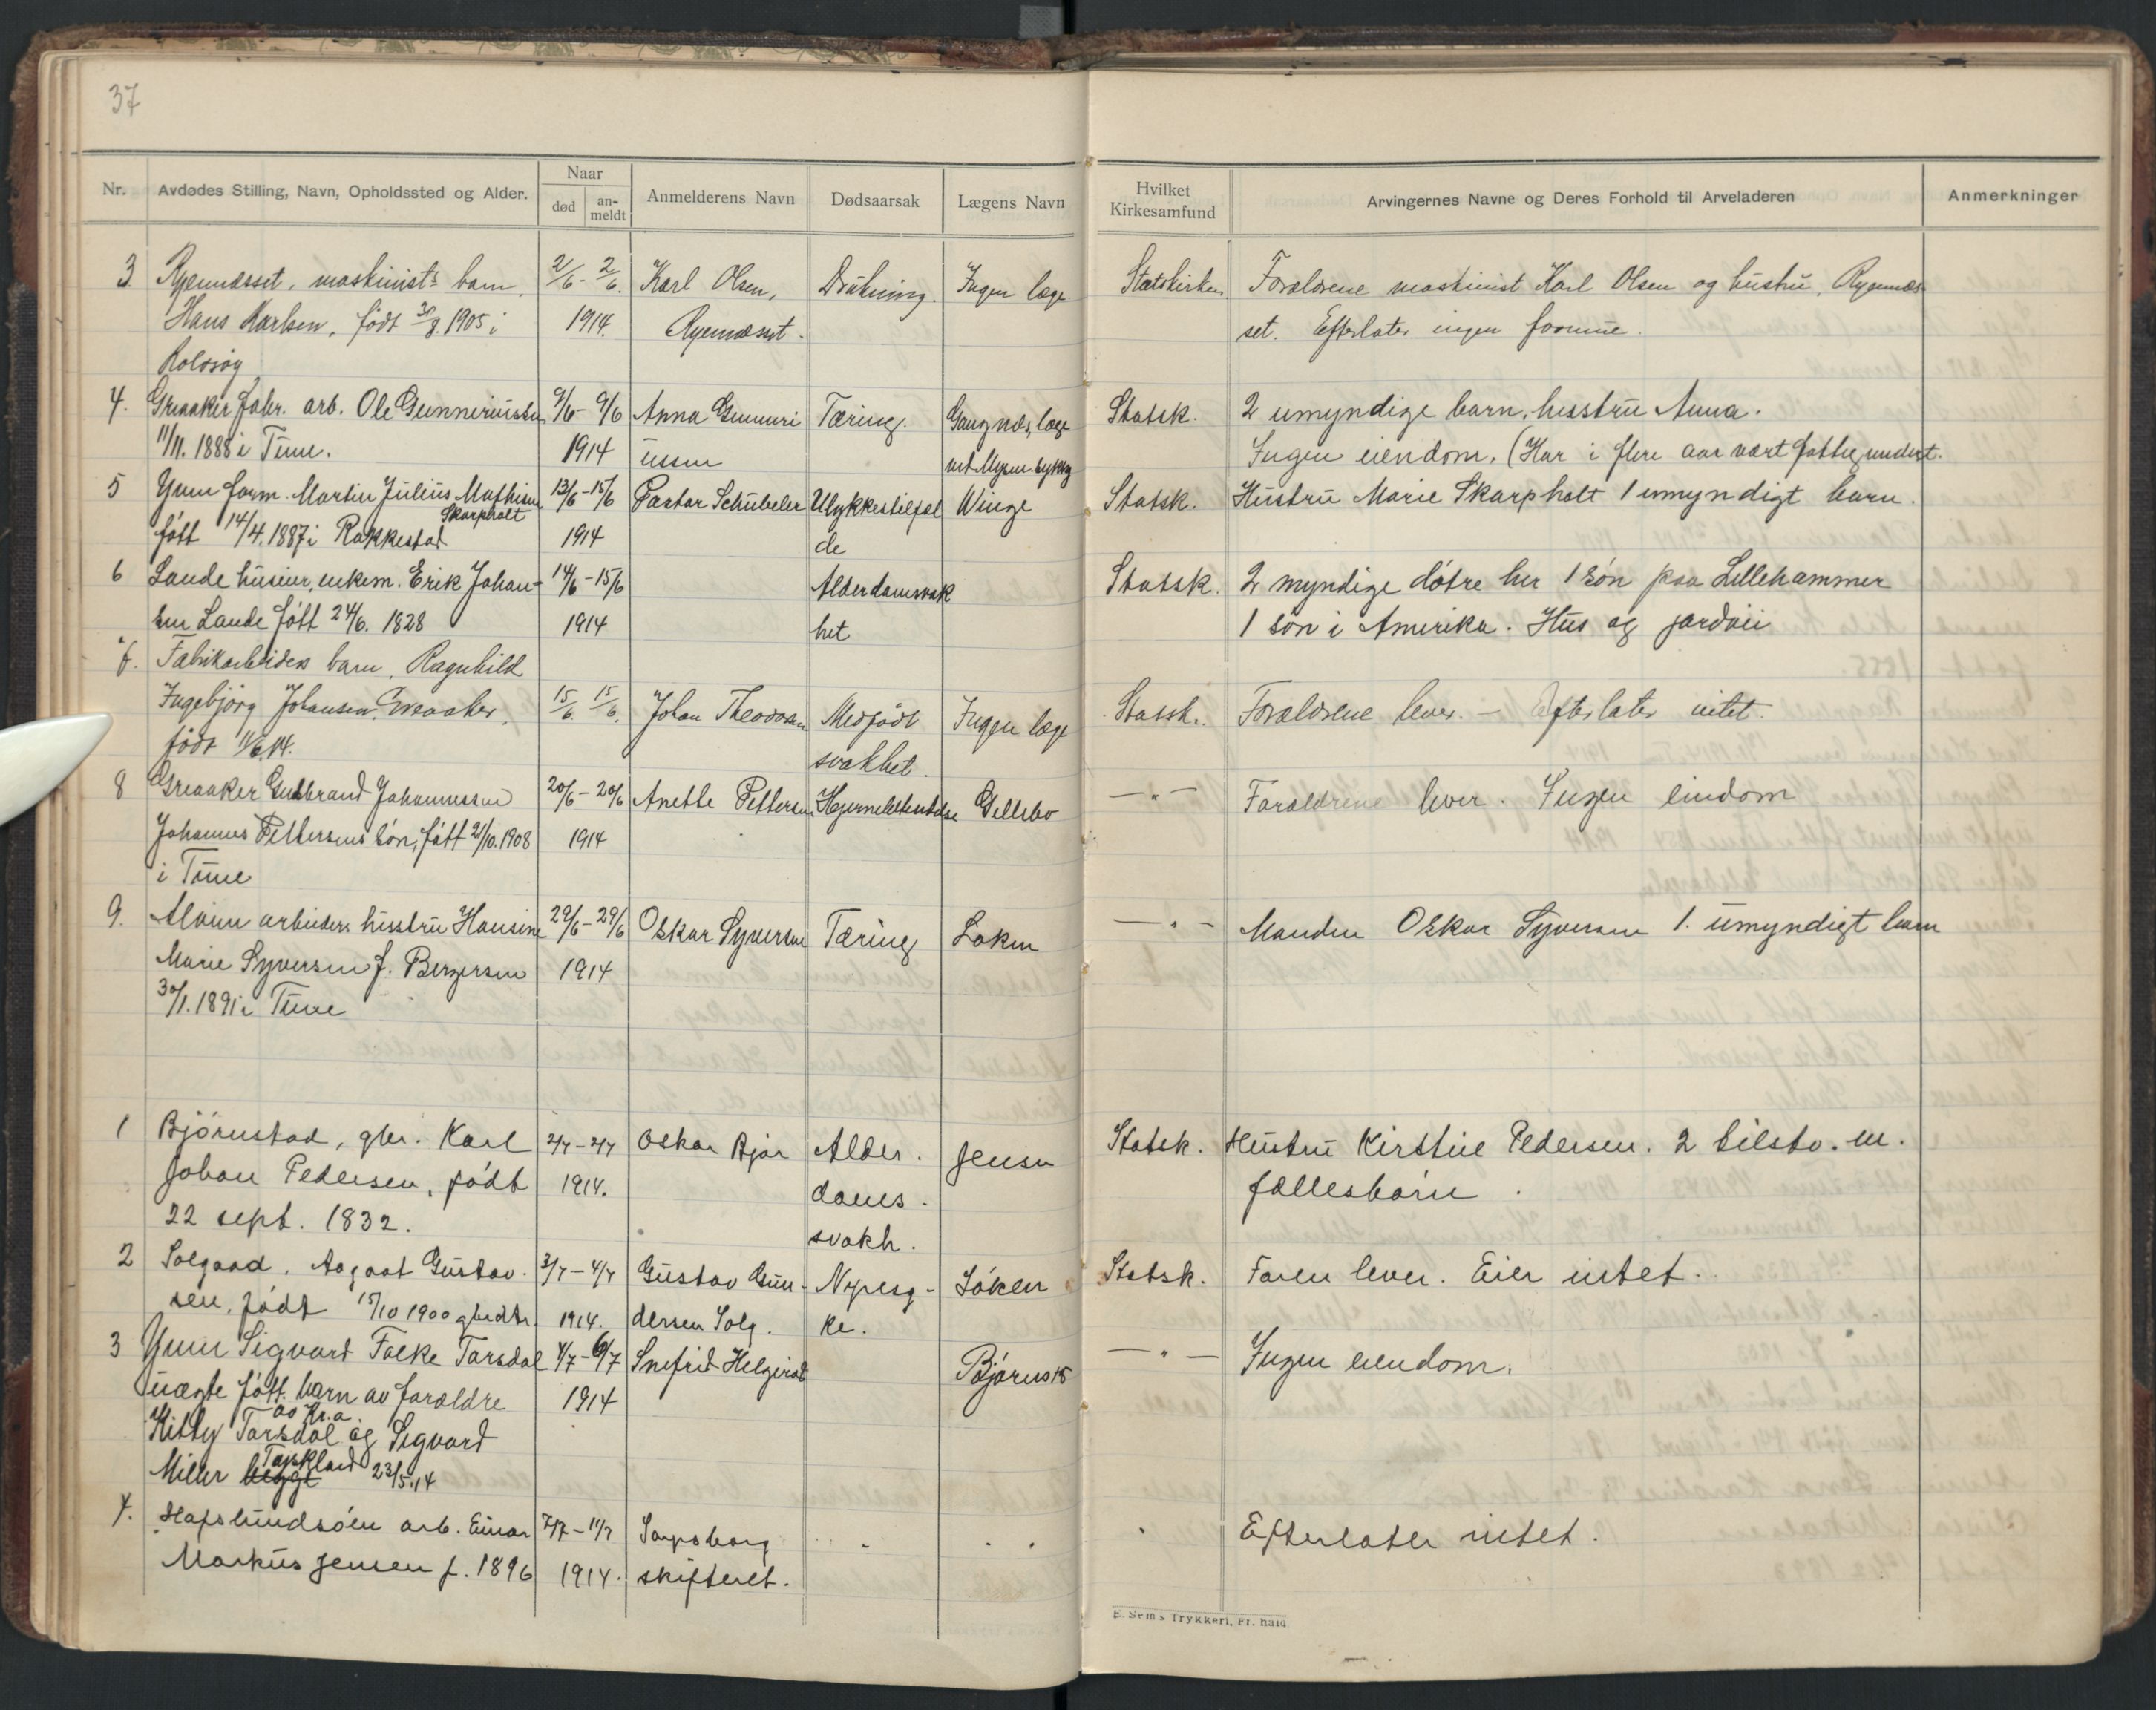 37
Nr. Avdødes Stilling, Navn, Opholdssted og Alder. Naar død an-meldt Anmelderens Navn Dødsaarsak Lægens Navn Hvilket Kirkesamfund Arvingernes Navne og Deres Forhold til Arveladeren Anmerkninger
3 Ryennæsset, maskinists barn, 2/6 - 2/6. Karl Olsen, Drukning. Ingen læge Statskirken Forældrene maskinist Karl Olsen og hustru, Ryennæs-
Hans Karlsen, født 30/8. 1905 i 1914. Ryennæsset. set. Efterlater ingen formue.
Rolvsøy
4. Greaaker fabr. arb. Ole Gunneriussen 9/6 - 9/6 Anna Gunneri Tæring. læge Statsk. 2 umyndige barn, hustru Anna.
11/11. 1888 i Tune. 1914 ussen Ingen eiendom. (Har i flere aar vært fattigunderst.
5 Yven form. Martin Julius Mathisen 13/6 - 15/6 Pastor Schübeler Ulykkestilfæl Winge Statsk. Hustru Marie Skarpholt 1 umyndigt barn.
Skarpholt
født 14/4. 1887 i Rakkestad 1914 de
6 Lande huseier, enkem. Erik Johan- 14/6 - 15/6 Alderdomsvak Statsk. 2 myndige døtre her 1 søn paa Lillehammer
sen Lande født 24/6. 1828 1914 het 1 søn i Amerika. Hus og jordvei
7. Fabrikarbeiders barn, Ragnhild
Ingebjørg Johansen, Greaaker, 15/6. 15/6. Johan Theodorsen Medfødt Ingen læge Statsk. Forældrene lever. - Efterlater intet.
født 11/6.14. svakhet.
8 Greaaker Gudbrand Johannessen 20/6 - 20/6 Anette Pettersen Hjernebetendelse Gellebo — " — Forældrene lever. Ingen eiendom
Johannes Pettersens søn, født 21/10. 1908 1914
i Tune
9. Alvim arbeiders hustru Hansine 29/6 - 29/6 Oskar Syversen Tæring Løken — " — Manden Oskar Syversen 1. umyndigt barn
Marie Syversen f. Bergersen 1914
30/1. 1891 i Tune
1 Bjørnstad, gbr. Karl 2/7 - 2/7 Oskar Bjør Alder. Jensen Statsk. Hustru Kirstine Pedersen. 2 tilsto. m.
Johan Pedersen, født 1914. doms. fællesbørn.
22 sept. 1832. svakh.
2 Solgaad, Aagaat Gustav. 3/7 - 4/7 Gustav Gun- Nyresy- Løken Statsk. Faren lever. Eier intet.
sen, født 15/10 1900 gbrdtr. 1914. dersen Solg. ke.
3 Yven Sigvard Falke Tarsdal 4/7 - 6/7 Snefrid Helgerød Bjørnst — " — Ingen eiendom.
uægte født barn av forældre 1914
av Kr.a
Kitty Tarsdal og Sigvard
Tyskland
Miller begge 23/5.14
4. Hafslundsøen arb. Einar 7/7 - 11/7 Sarpsborg Efterlater intet.
Markus Jensen f. 1896 1914. skifteret.
E. Sem's Trykkeri, Fr.hald.